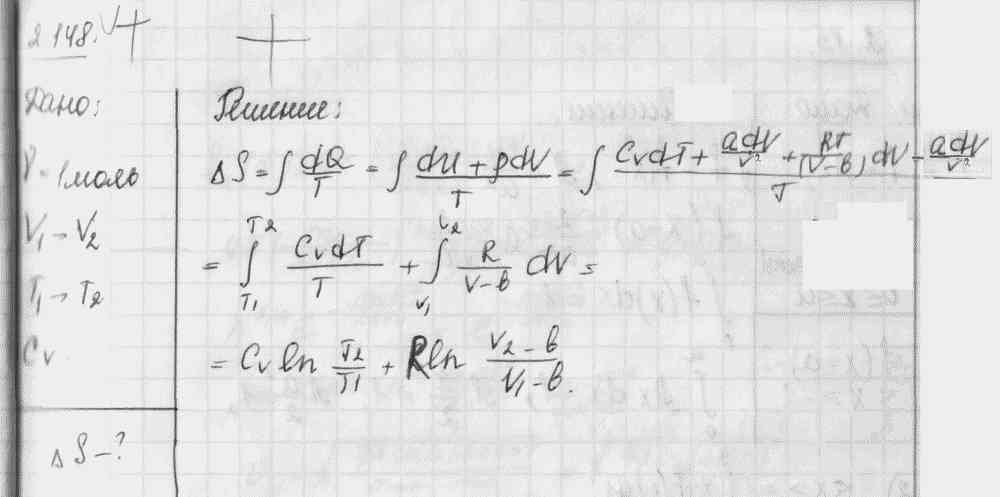 2.148.
Дано:
γ = 1 моль
V₁ → V₂
T₁ → T₂
Cv
ΔS – ?
Решение:
ΔS = ∫ dQ/T = ∫ (dU + pdV)/T = ∫ (CvdT + adV/V² + RT/(V–в) dV – adV/V²)/T
= ∫_{T1}^{T2} CvdT/T + ∫_{V1}^{V2} R/(V–в) dV =
= Cv ln T2/T1 + R ln (V₂ – в)/(V₁ – в).